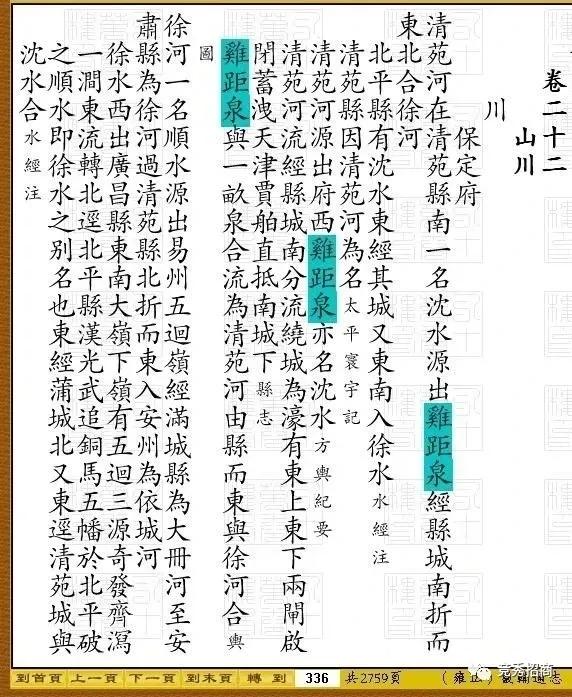 卷二十二
山川
川
保定府
清苑河在清苑縣南一名沈水源出雞距泉經縣城南折而
東北合徐河
北平縣有沈水東經其城又東南入徐水水經注
清苑縣因清苑河為名太平寰宇記
清苑河源出府西雞距泉亦名沈水方輿紀要
清苑河流經縣城南分流繞城為濠有東上東下兩閘啟
閉蓄洩天津賈舶直抵南城下縣志
雞距泉與一畝泉合流為清苑河由縣而東與徐河合輿
圖
徐河一名順水源出易州五迴嶺經滿城縣為大冊河至安
肅縣為徐河過清苑縣北折而東入安州為依城河
徐水西出廣昌縣東南大嶺下嶺有五迴三源奇發齊瀉
一澗東流轉北逕北平縣漢光武追銅馬五幡於北平破
之順水即徐水之別名也東經蒲城北又東逕清苑城與
沈水合水經注
到首頁 上一頁 下一頁 到末頁 轉 到 336 共2759頁 （雍正）畿輔通志
竞秀招商